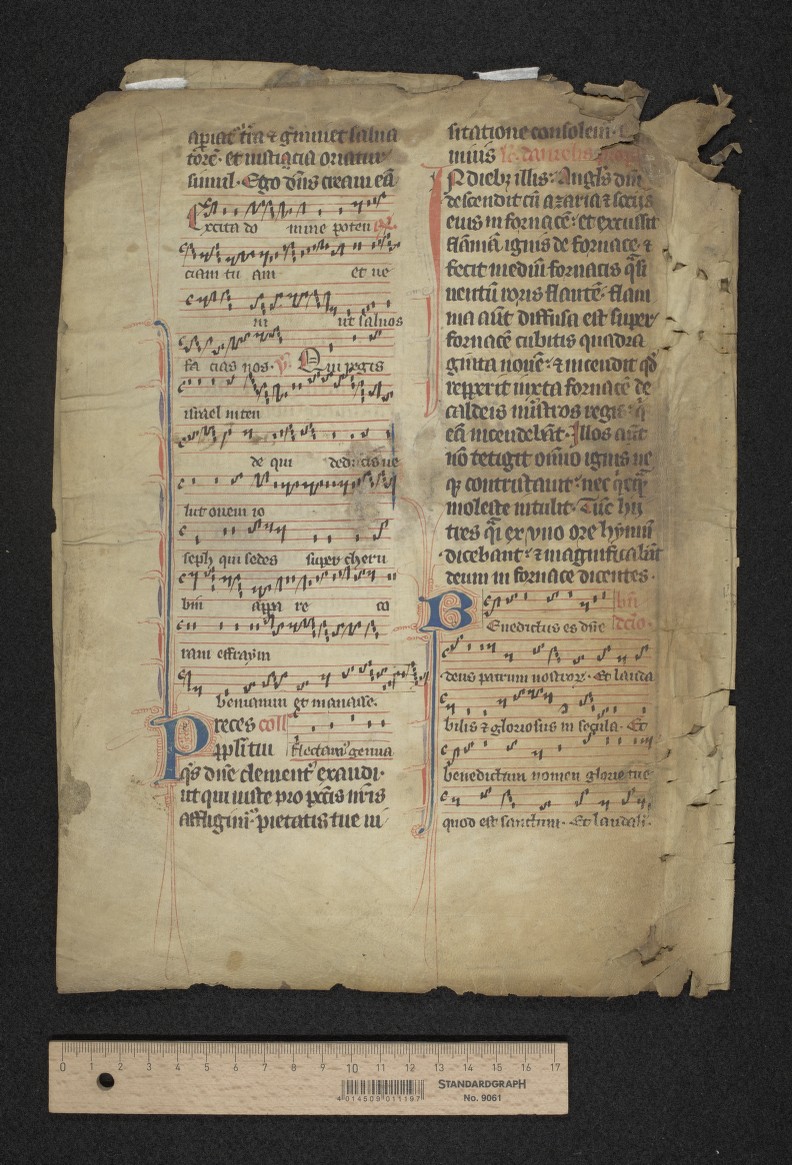 apiat͛ tr̄a ⁊ gͥminet salua
torē· et iusticia oriatur
simul· Ego dn̄s creaui eū
Excita do mine poten
ciam tu am et ue
ni ut saluos
fa cias nos· Qui regis
israel inten
de qui deducis ue
lut ouem io
seph qui sedes super cheru
bin appa re co
ram effraym
beniamin et manasse·
Preces coll̄
p̱p̱li tui flectam᷒ genua
q̄s dn̄e clement᷒ exaudi·
ut qui iuste pro pc̄tis nr̄is
affligim᷒· pietatis tue ui
sitatione consolem᷒·
minus danielis
In dieb᷒ illis· Angl̄s dn̄i
descendit cū azaria ⁊ sociis
eius in fornacē· et excussit
flāmā ignis de fornace· ⁊
fecit mediū fornacis q̄si
uentū roris flantē· flam
ma aūt diffusa est super
fornacē cubitis quadra
ginta nouē· ⁊ incendit q̄s
repperit iuxta fornacē de
caldeis mīstros regis q̄
eā incendebāt· Illos aūt
nō tetigit om̄īo ignis ne
qꝫ contristauit· nec qͥcqͣ̄
moleste intulit· Tūc hij
tres qͥ ex vno ore hymnū
dicebant· ⁊ magnificabāt
deum in fornace dicentes·
Benedictus es dn̄e
deus patrum nostror᷒· Et lauda
bilis ⁊ gloriosus in sec̄la· Et
benedictum nomen glorie tue
quod est sanctum· Et laudab̄·
0 1 2 3 4 5 6 7 8 9 10 11 12 13 14 15 16 17
4 014509 011197
STANDARDGRAPH
No. 9061